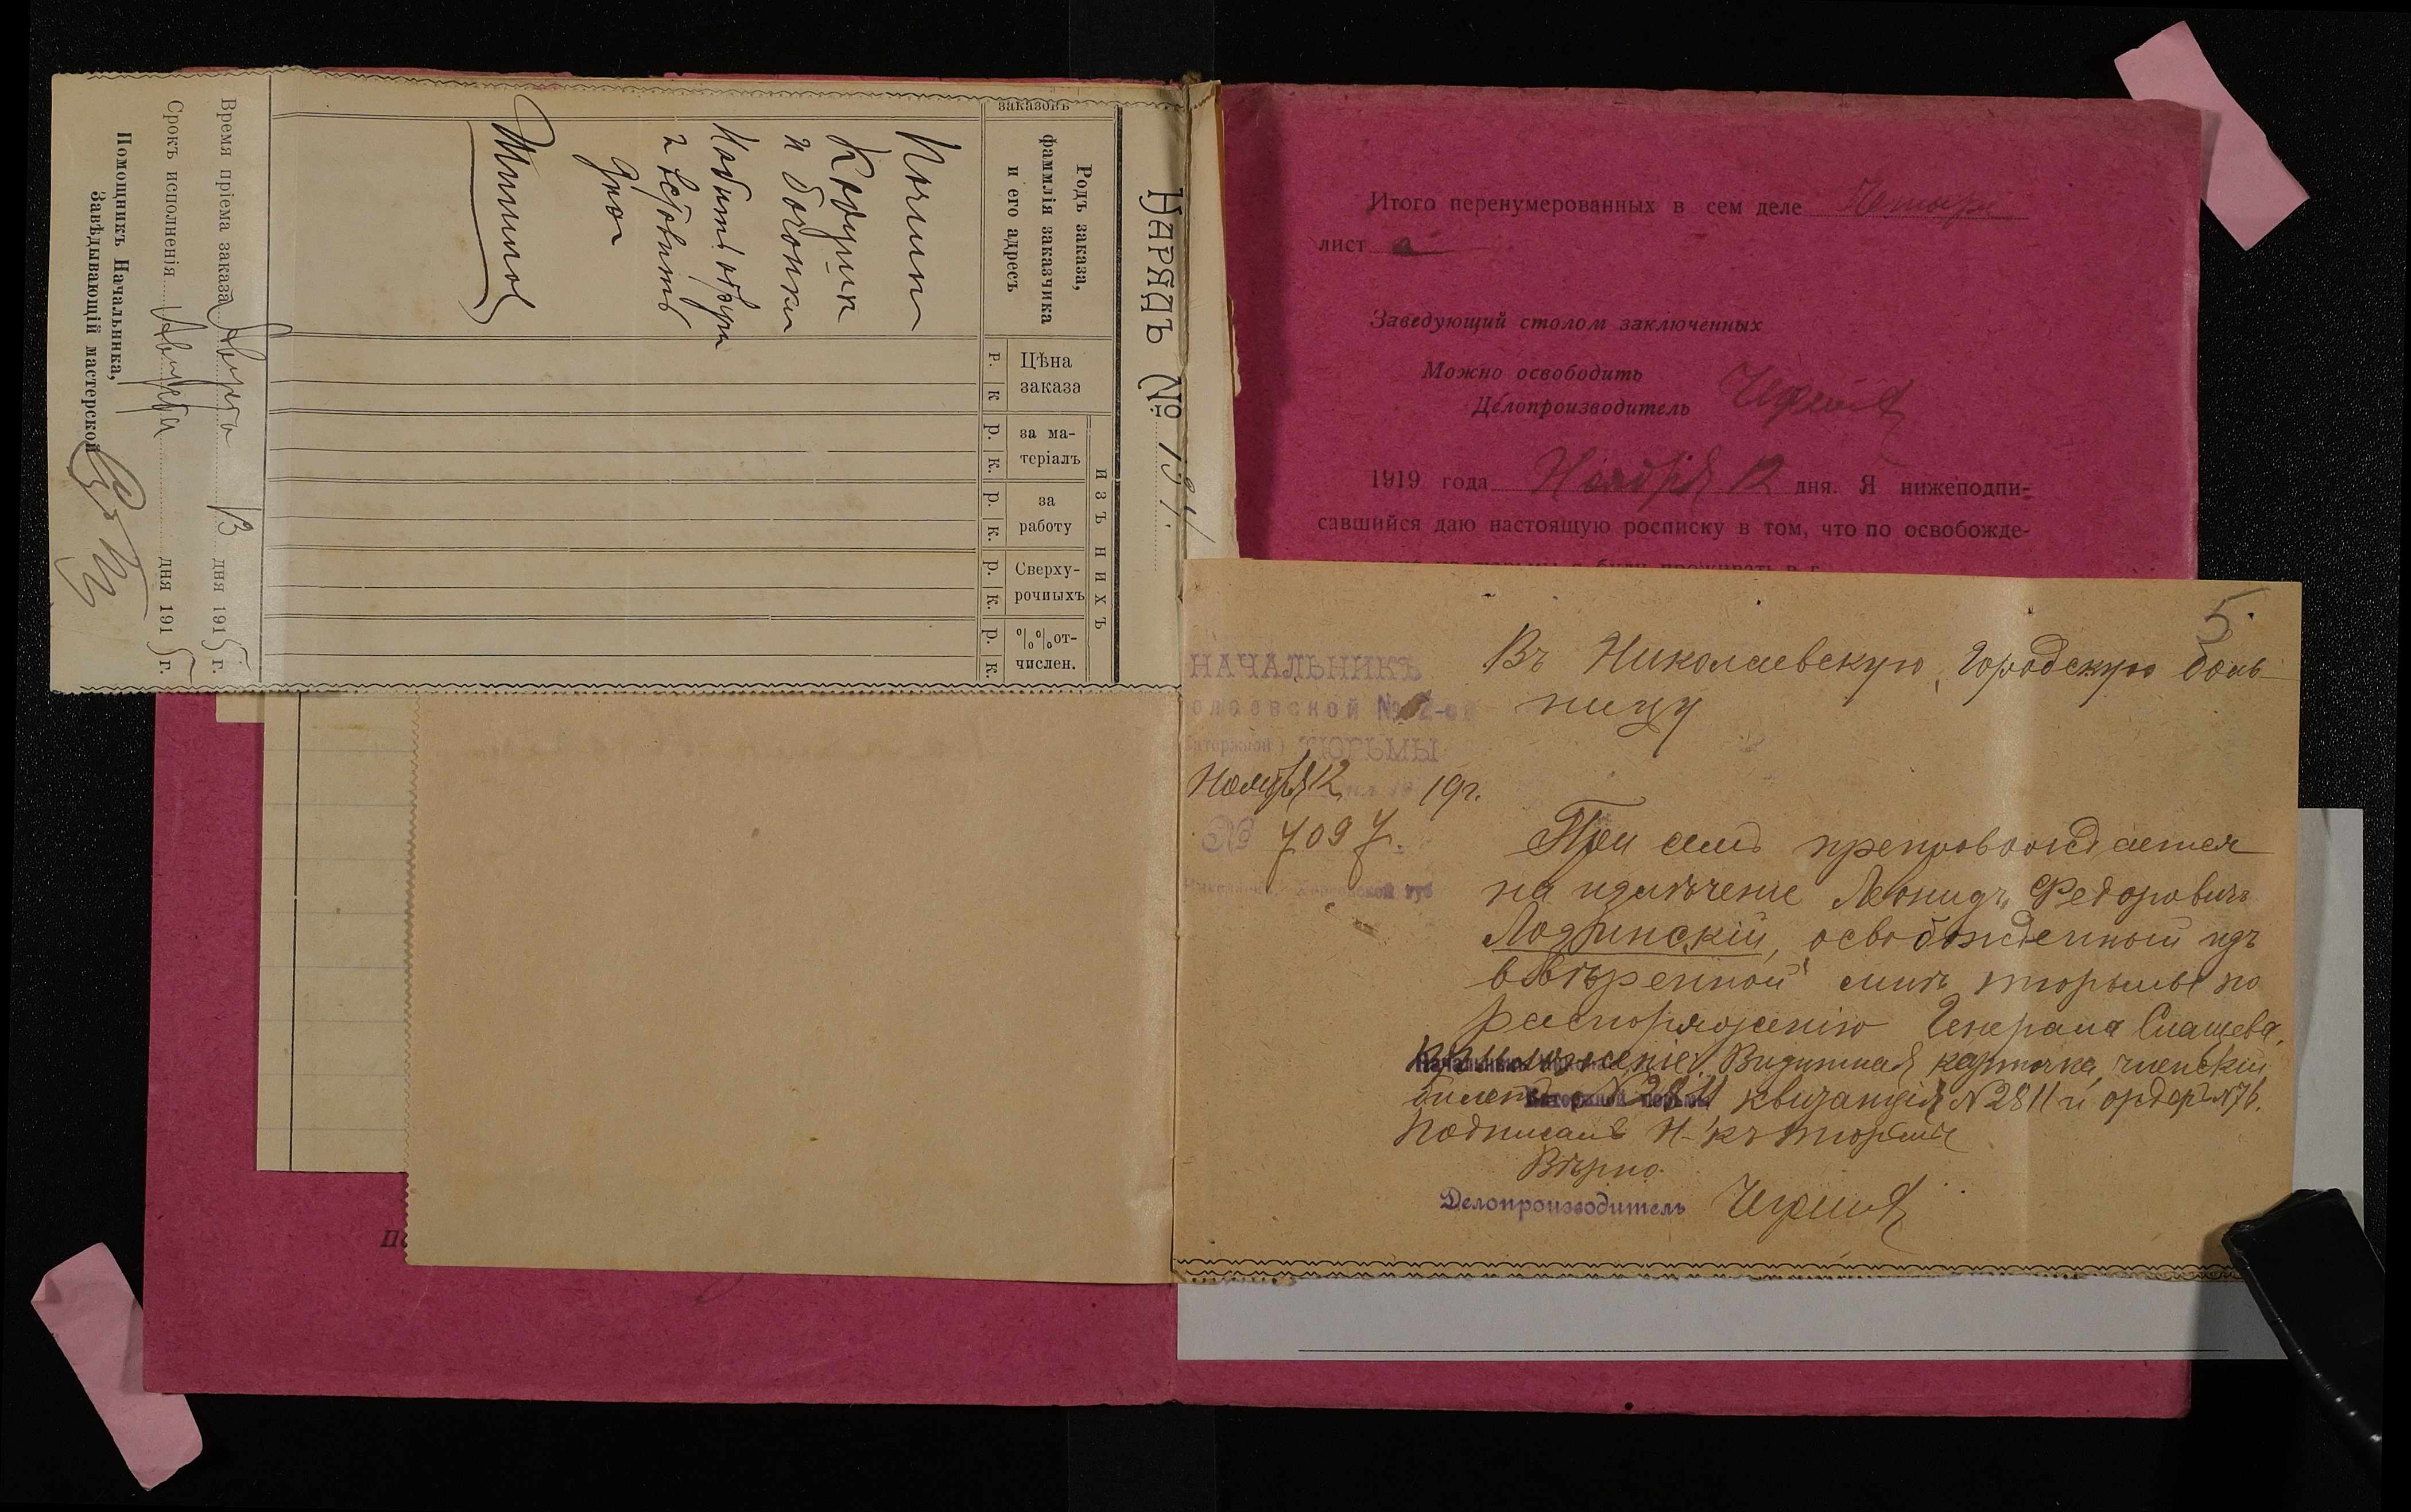 НАРЯДЪ № 194.
заказовъ
Родъ заказа,
фаммлія заказчика
и его адресъ
Цѣна
заказа
изъ нихъ
за ма-
теріалъ
за
работу
Сверху-
рочныхъ
%%от-
числен.
р. к р. к. р. к. р. к. р. к.
Кадушки
и бочонки
Набить обручи
и вставить
дно
Время пріема заказа 13 дня 1915 г.
Срокъ исполненія дня 1915 г.
Помощникъ Начальника,
Завѣдывающій мастерской
Итого перенумерованных в сем деле Четыре
лист а
Заведующий столом заключенных
Можно освободить
Делопроизводитель
1919 года Ноября 12 дня. Я нижеподпи-
савшийся даю настоящую росписку в том, что по освобожде-
5.
НАЧАЛЬНИКЪ
ТЮРЬМЫ
Ноября 12 19г.
№ 7097.
Въ Николаевскую Городскую боль
ницу
При семъ препровождается
на излѣченіе Леонидъ Федоровичъ
Лозинскій, освобожденный изъ
ввѣренной мнѣ тюрьмы по
распоряженію Генерала Слащева.
Приложеніе: Видитная карточка, членскій
билетъ № 2811 квитанція № 2811 и ордеръ № 76.
Подписалъ Н-къ тюрьмы
Вѣрно
Делопроизводитель